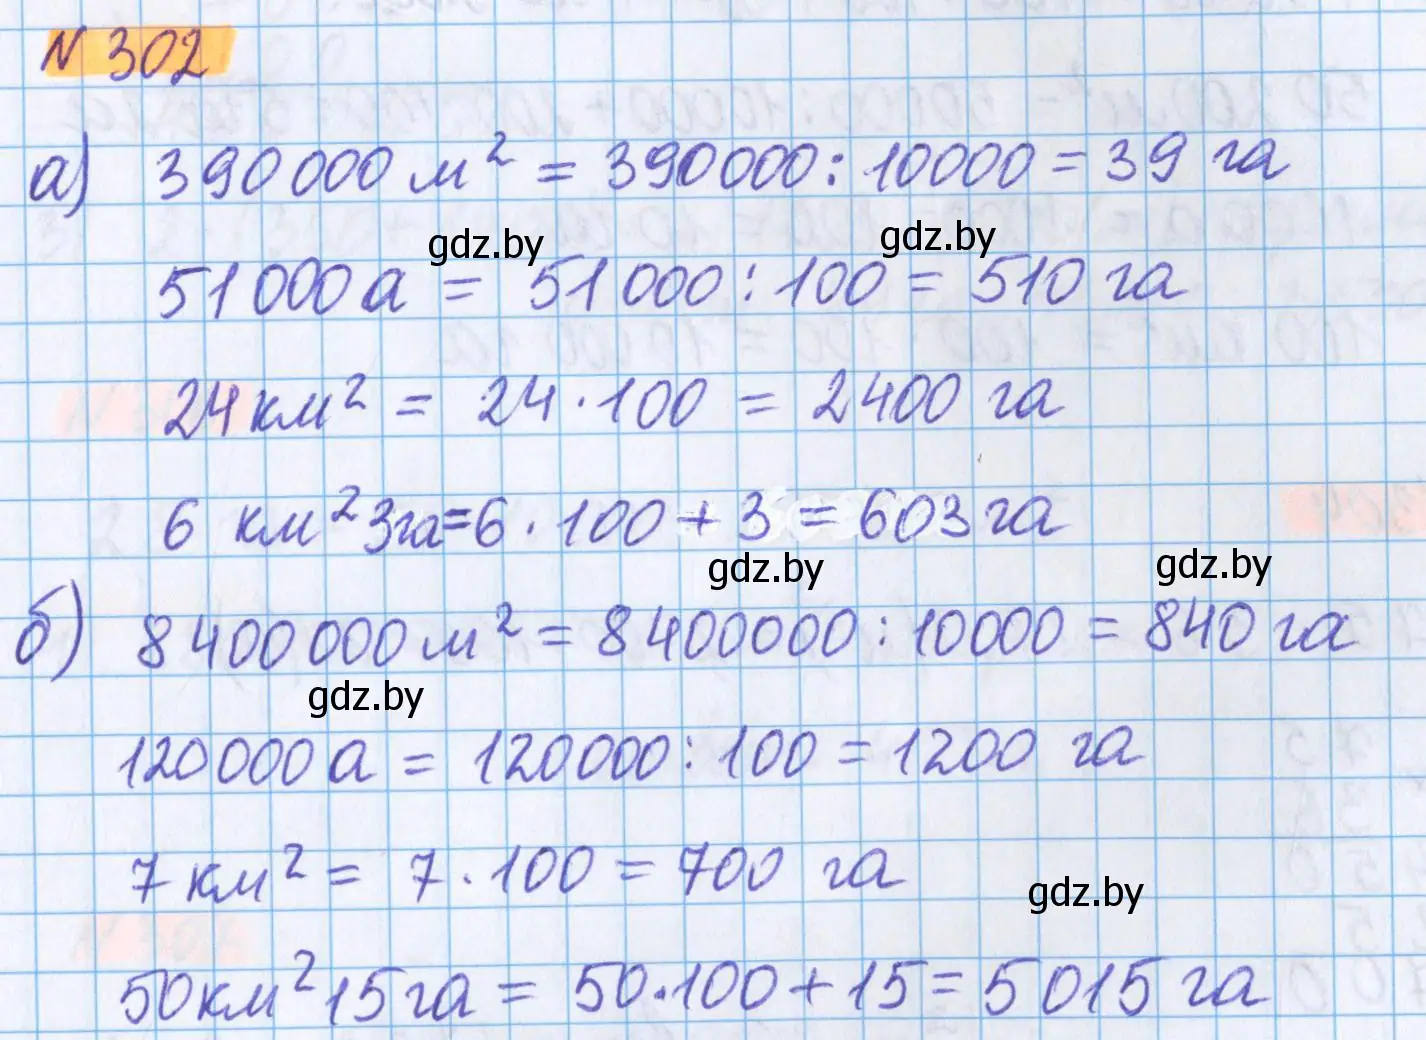 N 302
а) 390 000 м² = 390000 : 10000 = 39 га
gdz.by gdz.by
51 000 а = 51 000 : 100 = 510 га
24 км² = 24 · 100 = 2400 га
6 км² 3га = 6 · 100 + 3 = 603 га
gdz.by gdz.by
б) 8 400 000 м² = 8 400000 : 10000 = 840 га
gdz.by
120 000 а = 120000 : 100 = 1200 га
7 км² = 7 · 100 = 700 га
gdz.by
50 км² 15 га = 50 · 100 + 15 = 5 015 га